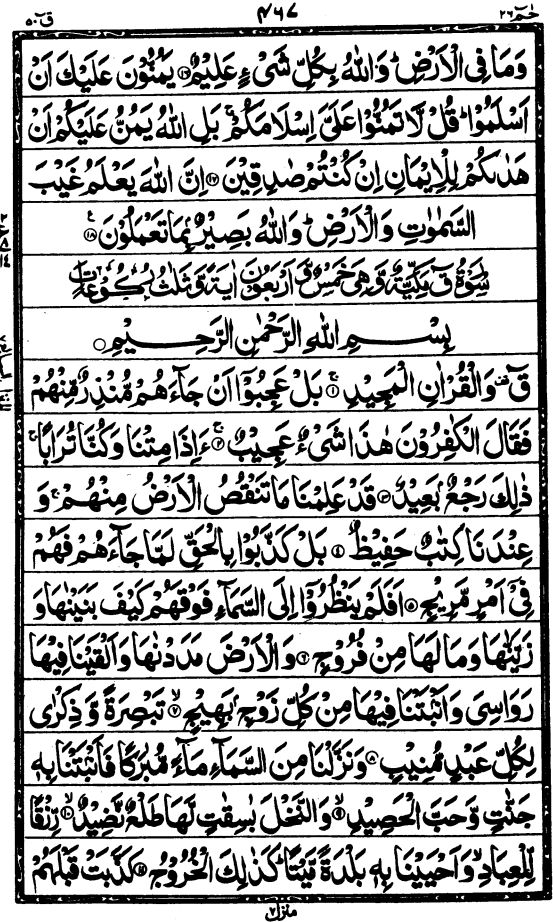 حٰمٓ ٢٦ ٤٦٧ قٓ ٥٠
وَمَا فِى الْاَرْضِ ؕ وَاللّٰهُ بِكُلِّ شَىْءٍ عَلِيْمٌ ﴿١٦﴾ يَمُنُّوْنَ عَلَيْكَ اَنْ
اَسْلَمُوْا ؕ قُلْ لَّا تَمُنُّوْا عَلَىَّ اِسْلَامَكُمْ ۚ بَلِ اللّٰهُ يَمُنُّ عَلَيْكُمْ اَنْ
هَدٰىكُمْ لِلْاِيْمَانِ اِنْ كُنْتُمْ صٰدِقِيْنَ ﴿١٧﴾ اِنَّ اللّٰهَ يَعْلَمُ غَيْبَ
السَّمٰوٰتِ وَالْاَرْضِ ؕ وَاللّٰهُ بَصِيْرٌۢ بِمَا تَعْمَلُوْنَ ﴿١٨﴾
سُوْرَةُ قٓ مَكِّيَّةٌ وَّهِىَ خَمْسٌ وَّاَرْبَعُوْنَ اٰيَةً وَّثَلٰثُ رُكُوْعَاتٍ
بِسْمِ اللّٰهِ الرَّحْمٰنِ الرَّحِيْمِ
قٓ ۚ وَالْقُرْاٰنِ الْمَجِيْدِ ﴿١﴾ بَلْ عَجِبُوْٓا اَنْ جَآءَهُمْ مُّنْذِرٌ مِّنْهُمْ
فَقَالَ الْكٰفِرُوْنَ هٰذَا شَىْءٌ عَجِيْبٌ ﴿٢﴾ ءَاِذَا مِتْنَا وَكُنَّا تُرَابًا ۚ
ذٰلِكَ رَجْعٌۢ بَعِيْدٌ ﴿٣﴾ قَدْ عَلِمْنَا مَا تَنْقُصُ الْاَرْضُ مِنْهُمْ ۚ وَ
عِنْدَنَا كِتٰبٌ حَفِيْظٌ ﴿٤﴾ بَلْ كَذَّبُوْا بِالْحَقِّ لَمَّا جَآءَهُمْ فَهُمْ
فِىْٓ اَمْرٍ مَّرِيْجٍ ﴿٥﴾ اَفَلَمْ يَنْظُرُوْٓا اِلَى السَّمَآءِ فَوْقَهُمْ كَيْفَ بَنَيْنٰهَا وَ
زَيَّنّٰهَا وَمَا لَهَا مِنْ فُرُوْجٍ ﴿٦﴾ وَالْاَرْضَ مَدَدْنٰهَا وَاَلْقَيْنَا فِيْهَا
رَوَاسِىَ وَاَنْۢبَتْنَا فِيْهَا مِنْ كُلِّ زَوْجٍۢ بَهِيْجٍ ﴿٧﴾ تَبْصِرَةً وَّذِكْرٰى
لِكُلِّ عَبْدٍ مُّنِيْبٍ ﴿٨﴾ وَنَزَّلْنَا مِنَ السَّمَآءِ مَآءً مُّبٰرَكًا فَاَنْۢبَتْنَا بِهٖ
جَنّٰتٍ وَّحَبَّ الْحَصِيْدِ ﴿٩﴾ وَالنَّخْلَ بٰسِقٰتٍ لَّهَا طَلْعٌ نَّضِيْدٌ ﴿١٠﴾ رِّزْقًا
لِّلْعِبَادِ ۙ وَاَحْيَيْنَا بِهٖ بَلْدَةً مَّيْتًا ؕ كَذٰلِكَ الْخُرُوْجُ ﴿١١﴾ كَذَّبَتْ قَبْلَهُمْ
منزل